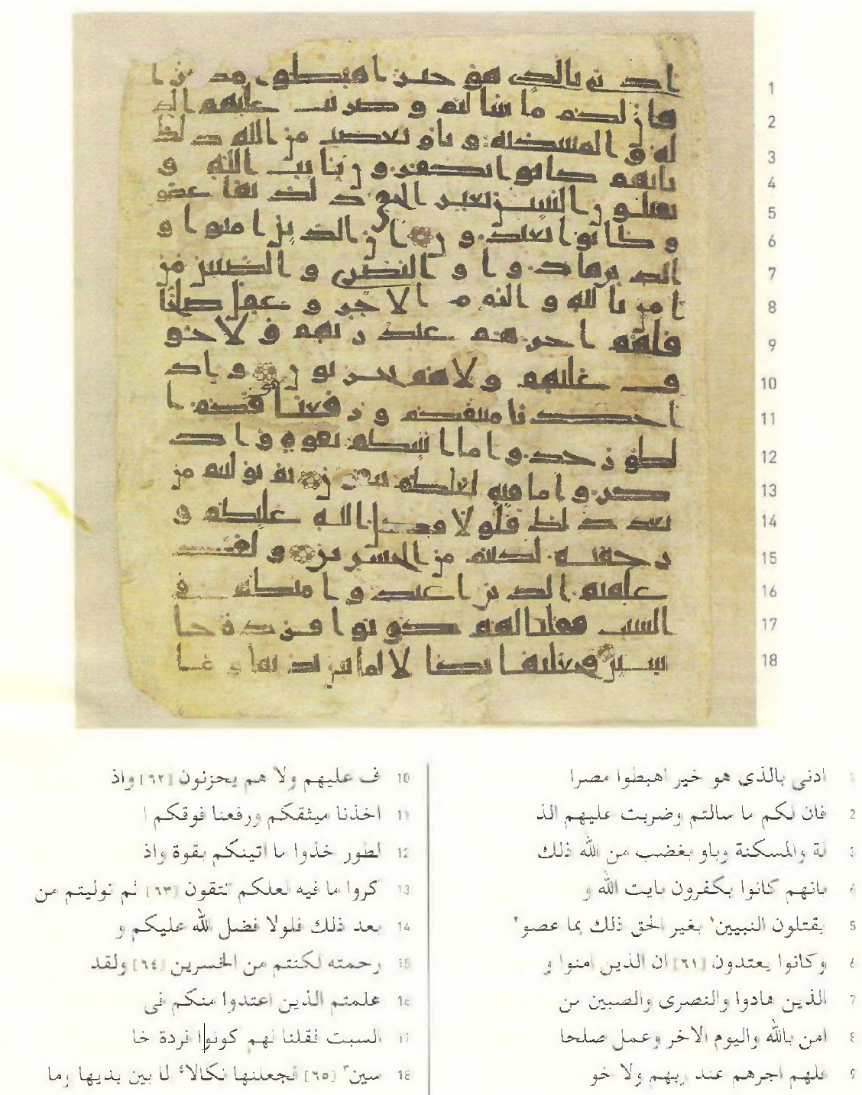 ادنى بالذى هو خير اهبطوا مصرا 1
فان لكم ما سالتم وضربت عليهم الذ 2
لة والمسكنة وباو بغضب من الله ذلك 3
بانهم كانوا يكفرون بايت الله و 4
يقتلون النبيين بغير الحق ذلك بما عصو 5
وكانوا يعتدون ان الذين امنوا و 6
الذين هادوا والنصرى والصبين من 7
امن بالله واليوم الاخر وعمل صلحا 8
فلهم اجرهم عند ربهم ولا خو 9
ف عليهم ولا هم يحزنون واذ 10
اخذنا ميثقكم ورفعنا فوقكم ا 11
لطور خذوا ما اتينكم بقوة واذ 12
كروا ما فيه لعلكم تتقون ثم توليتم من 13
بعد ذلك فلولا فضل الله عليكم و 14
رحمته لكنتم من الخسرين ولقد 15
علمتم الذين اعتدوا منكم فى 16
السبت فقلنا لهم كونوا قردة خا 17
سين فجعلنها نكالا لما بين يديها وما 18
1 ادنى بالذى هو خير اهبطوا مصرا
2 فان لكم ما سالتم وضربت عليهم الذ
3 لة والمسكنة وباو بغضب من الله ذلك
4 بانهم كانوا يكفرون بايت الله و
5 يقتلون النبيين١ بغير الحق ذلك بما عصو٢
6 وكانوا يعتدون [٦١] ان الذين امنوا و
7 الذين هادوا والنصرى والصبين من
8 امن بالله واليوم الاخر وعمل صلحا
9 فلهم اجرهم عند ربهم ولا خو
10 ف عليهم ولا هم يحزنون [٦٢] واذ
11 اخذنا ميثقكم ورفعنا فوقكم ا
12 لطور خذوا ما اتينكم بقوة واذ
13 كروا ما فيه لعلكم تتقون [٦٣] ثم توليتم من
14 بعد ذلك فلولا فضل الله عليكم و
15 رحمته لكنتم من الخسرين [٦٤] ولقد
16 علمتم الذين اعتدوا منكم فى
17 السبت فقلنا لهم كونوا قردة خا
18 سين٣ [٦٥] فجعلنها نكالا٤ لما بين يديها وما